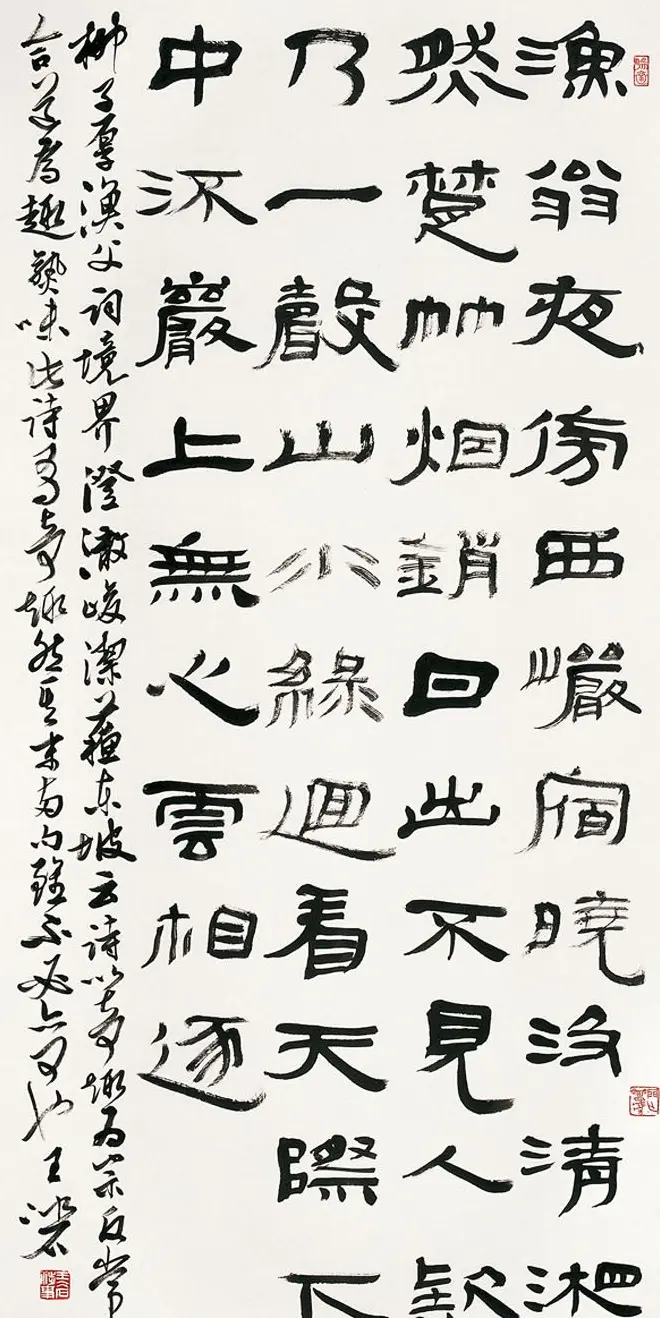 漁翁夜傍西巖宿曉汲清湘
然楚竹烟銷日出不見人欸
乃一聲山水緑迴看天際下
中流巖上無心雲相逐
柳子厚漁父詞境界澄澈峻潔蘇東坡云詩以奇趣為宗反常
合道為趣熟味此詩有奇趣然其末两句雖不必亦可也王